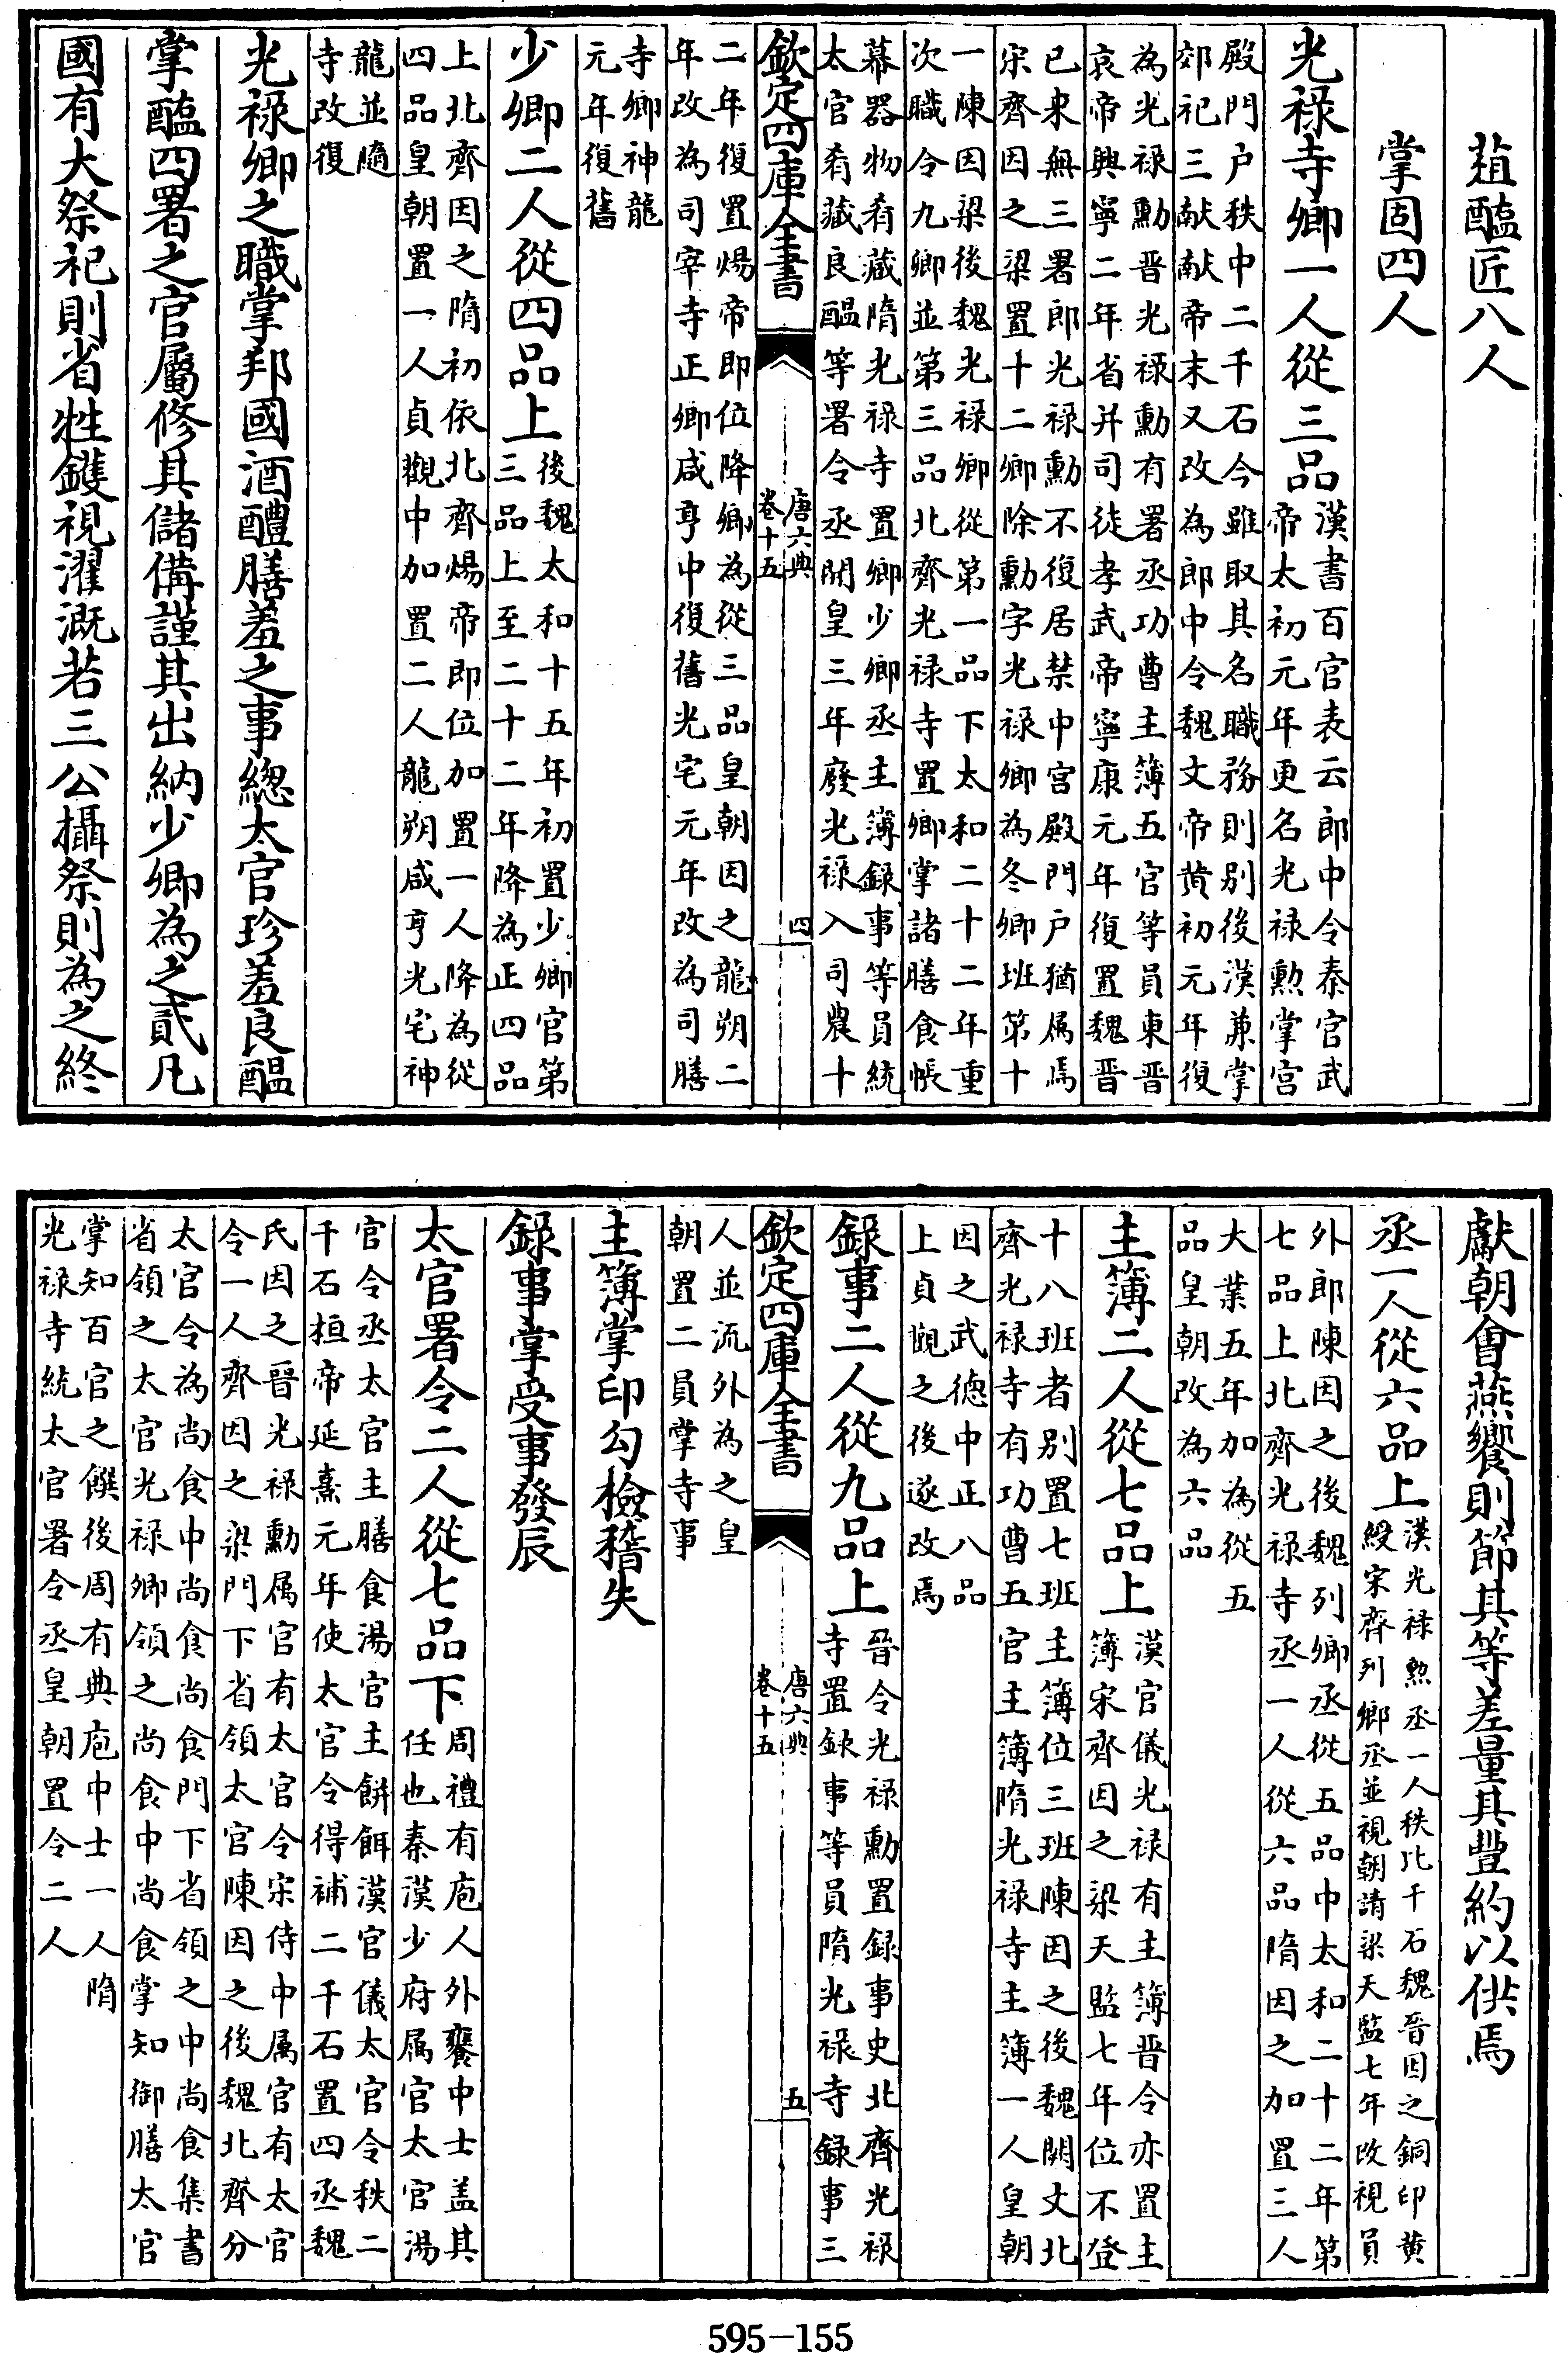 葅醢匠八人
掌固四人
光禄寺卿一人從三品漢書百官表云郎中令秦官武
帝太初元年更名光禄勲掌宫
殿門户秩中二千石今雖取其名職務則别後漢兼掌
郊祀三献献帝末又改為郎中令魏文帝黄初元年復
為光禄勳晉光禄勳有署丞功曹主簿五官等員東晉
哀帝興寧二年省并司徒孝武帝寧康元年復置魏晉
已来無三署郎光禄勳不復居禁中宫殿門户猶属焉
宋齊因之梁置十二卿除勳字光禄卿為冬卿班第十
一陳因梁後魏光禄卿從第一品下太和二十二年重
次職令九卿並第三品北齊光禄寺置卿掌諸膳食帳
幕器物肴藏隋光禄寺置卿少卿丞主簿録事等員統
太官肴藏良醖等署令丞開皇三年廢光禄入司農十
欽定四庫全書
唐六典
卷十五
四
二年復置煬帝即位降卿為從三品皇朝因之龍朔二
年改為司宰寺正卿咸亨中復舊光宅元年改為司膳
寺卿神龍
元年復舊
少卿二人從四品上後魏太和十五年初置少卿官第
三品上至二十二年降為正四品
上北齊因之隋初依北齊煬帝即位加置一人降為從
四品皇朝置一人貞觀中加置二人龍朔咸亨光宅神
龍並隨
寺改復
光禄卿之職掌邦國酒醴膳羞之事總太官珍羞良醖
掌醢四署之官屬修其儲備謹其出納少卿為之貳凡
國有大祭祀則省牲鑊視濯溉若三公攝祭則為之終
獻朝會燕饗則節其等差量其豐約以供焉
丞一人從六品上漢光禄勲丞一人秩比千石魏晉因之銅印黄
綬宋齊列卿丞並視朝請梁天監七年改視員
外郎陳因之後魏列卿丞從五品中太和二十二年第
七品上北齊光禄寺丞一人從六品隋因之加置三人
大業五年加為從五
品皇朝改為六品
主簿二人從七品上漢官儀光禄有主簿晉令亦置主
簿宋齊因之梁天監七年位不登
十八班者别置七班主簿位三班陳因之後魏闕文北
齊光禄寺有功曹五官主簿隋光禄寺主簿一人皇朝
因之武德中正八品
上貞觀之後遂改焉
録事二人從九品上晉令光禄勳置録事史北齊光禄
寺置録事等員隋光禄寺録事三
欽定四庫全書
唐六典
卷十五
五
人並流外為之皇
朝置二員掌寺事
主簿掌印勾檢稽失
録事掌受事發辰
太官署令二人從七品下周禮有庖人外饔中士盖其
任也秦漢少府属官太官湯
官令丞太官主膳食湯官主餅餌漢官儀太官令秩二
千石桓帝延熹元年使太官令得補二千石置四丞魏
氏因之晉光禄勳属官有太官令宋侍中属官有太官
令一人齊因之梁門下省領太官陳因之後魏北齊分
太官令為尚食中尚食尚食門下省領之中尚食集書
省領之太官光禄卿領之尚食中尚食掌知御膳太官
掌知百官之饌後周有典庖中士一人隋
光禄寺統太官署令丞皇朝置令二人
595-155